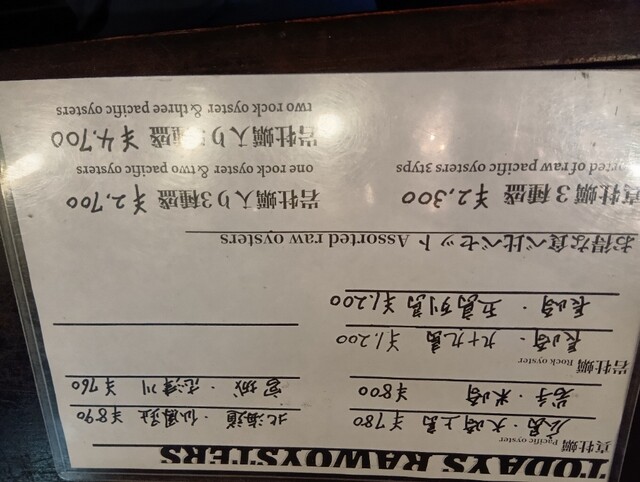 TODAYS RAWOYSTERS
真牡蠣 Pacific oyster
広島・大崎上島 ¥780
北海道・仙鳳趾 ¥890
岩手・米崎 ¥800
宮城・志津川 ¥760
岩牡蠣 Rock oyster
長崎・九十九島 ¥1,200
長崎・五島列島 ¥1,200
お得な食べ比べセット Assorted raw oysters
真牡蠣3種盛 ¥2,300
orted of raw pacific oysters 3typs
岩牡蠣入り3種盛 ¥2,700
one rock oyster & two pacific oysters
岩牡蠣入り 種盛 ¥4,700
two rock oyster & three pacific oysters